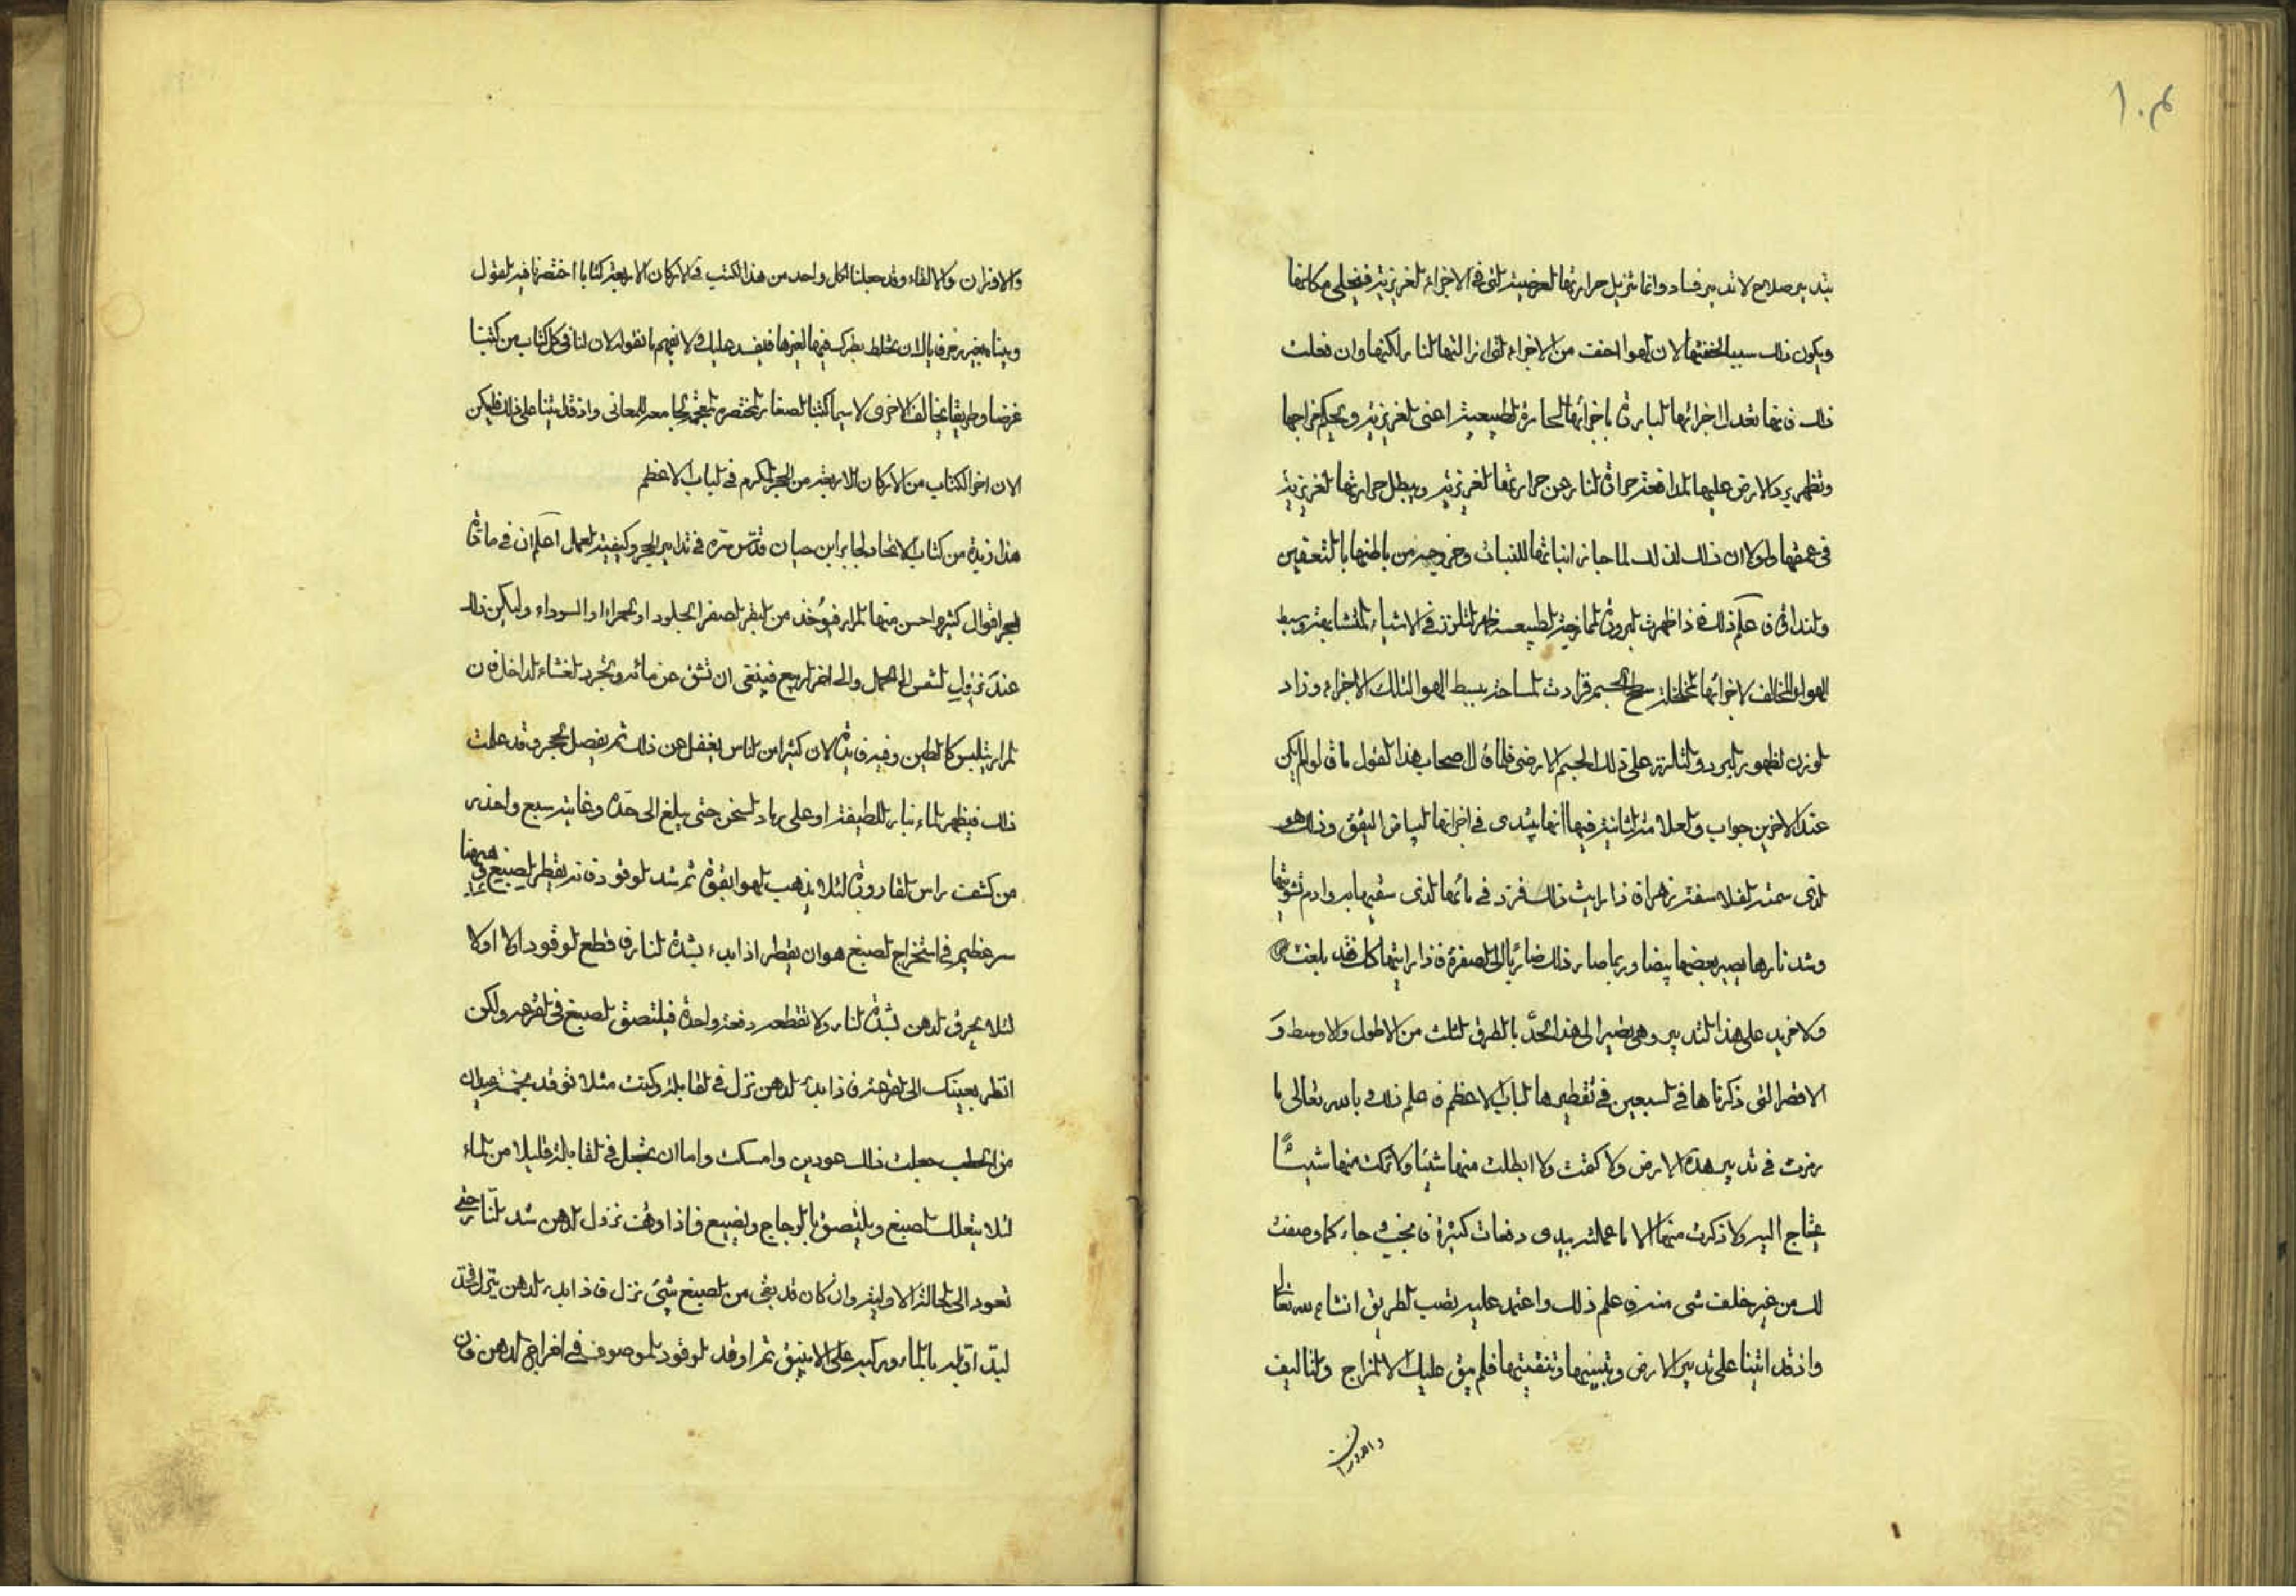 ١٠٤
بتدبير صلاح لا تدبير فساد وانما تزيل حرارتها العرضية التى فى الاجزاء الغريزية فيخلى مكانها
ويكون ذلك سببا لخفتها لان الهوا اخف من الاجزاء التى ازالتها النار لكنها وان فعلت
ذلك فانها تعدل اجزائها الباردة باجزائها الحارة الطبيعية اعنى الغريزية ويحكم مزاجها
وتظهر برد الارض عليها لمدافعة حرارة النار عن حرارتها الغريزية ويبطل حرارتها الغريزية
فى عمقها ولولا ان ذلك كذلك لما جاز انباتها للنبات وخروجه من باطنها بالتعفين
والنداوة فاعلم ذلك فاذا ظهرت البرودة الممازجة الطبيعة ظهر التلزز فى الاشياء المتشابهة وسط
الهواء المخالف لاجزائها المخلخلة سطح الجسم فزادت المساحة ببسط الهوا لتلك الاجزاء وزاد
الوزن لظهور البرد والتلزز على ذلك الجسم الارضى فلما قال اصحاب هذا القول ما قالوا لم يكن
عند الاخرين جواب والعلامة الثانية فيها انها يبتدى فى اجزائها البياض اليقق وذلك هو
الذى سمته الفلاسفة زهرا فاذا رايت ذلك فزد فى مائها الذى سقيتها به وادم تشويتها
وشد نارها يصير بعضها بيضا وربما صار ذلك ضاربا الى الصفرة فاذا رايتها كك فقد بلغت
ولا مزيد على هذا التدبير وهى تصير الى هذا الحدّ بالطرق الثلث من الاطول والاوسط و
الاقصر التى ذكرناها فى السبعين فى تقطيرها الباب الاعظم فاعلم ذلك وبالله تعالى ما
رمزت فى تدبير هذه الارض ولا كتمت ولا ابطلت منها شيئا ولا تركت منها شيئًا
يحتاج اليه ولا ذكرت منها الا ما عملته بيدى دفعات كثيرة فانجب جاء كما وصفت
لك من غير خلف شى منه فاعلم ذلك واعتمد عليه تصب الطريق انشاء الله تعالى
واذ قد اتينا على تدبير الارض وتبييضها وتنقيتها فلم يبق عليك الا المزاج والتاليف
والاوزان
والاوزان والالقاء وقد جعلنا لكل واحد من هذا الكتب فى الاركان الاربعة كتابا اختصرنا فيه القول
وبيناه بغير زخرف بالان يختلط بطرك فيها لغيرها فيفسد عليك ولا تفهم ما نقوله لان لنا فى كل كتاب من كتبنا
غرضا وطريقا يخالف الاخرى لاسيما كتبنا الصغار المختصرة المعجمة الجامعة المعانى واذ قد اتينا على ذلك فليكن
الان اخر الكتاب من الاركان الاربعة من الحجر المكرم فى الباب الاعظم
هذا زبدة من كتاب الاتحاد لجابر ابن حيان قدّس سره فى تدابير الحجر وكيفية العمل اعلم ان فى مادة
الحجر اقوال كثيرة احسن منها المرار فيؤخذ من البقر الصفرا الجلود او الحمراء او السوداء وليكن ذلك
عند نزول الشمس الى الحمل والى اخر الربيع فينبغى ان تشق عن مائه ويجرد الغشاء الداخل فان
المرار يتلبس كالطين وفيه فايدة لان كثيرا من الناس يغفل عن ذلك ثم يفصل الحجر وقد علمت
ذلك فيظهر الماء بنار لطيفة او على رماد لسخن حتى يبلغ الى حدّه وغايته سبع واحذر
من كشف راس القارورة لئلا يذهب الهوا بقوة ثم شد الوقود فانه يقطر الصبغ وههنا
سر عظيم فى استخراج الصبغ هو ان يقطر اذا بدء بشدة النار فاقطع الوقود اولا اولا
لئلا يحرق الدهن بشدة النار ولا تقطعه دفعة واحدة فيلتصق الصبغ فى القرعة ولكن
انظر بعينك الى القرعة فاذا بدء الدهن نزل فى القابلة وكنت مثلا توقد بخمسة عيدان
من الحطب جعلت ذلك عودين وامسكت واما ان يجعل فى القابلة قليلا من الماء
لئلا يتعلك الصبغ ويلتصق بالزجاج ويضيع فاذا وقف نزول الدهن شد النار حتى
تعود الى الحالة الاولية وان كان قد بقى من الصبغ شئ نزل فاذا بدء الدهن يتنزل فخذ
لبد اوله بالماء وركبه على الانبيق ثم اوقد الوقود الموصوف فى اخراج الدهن فان